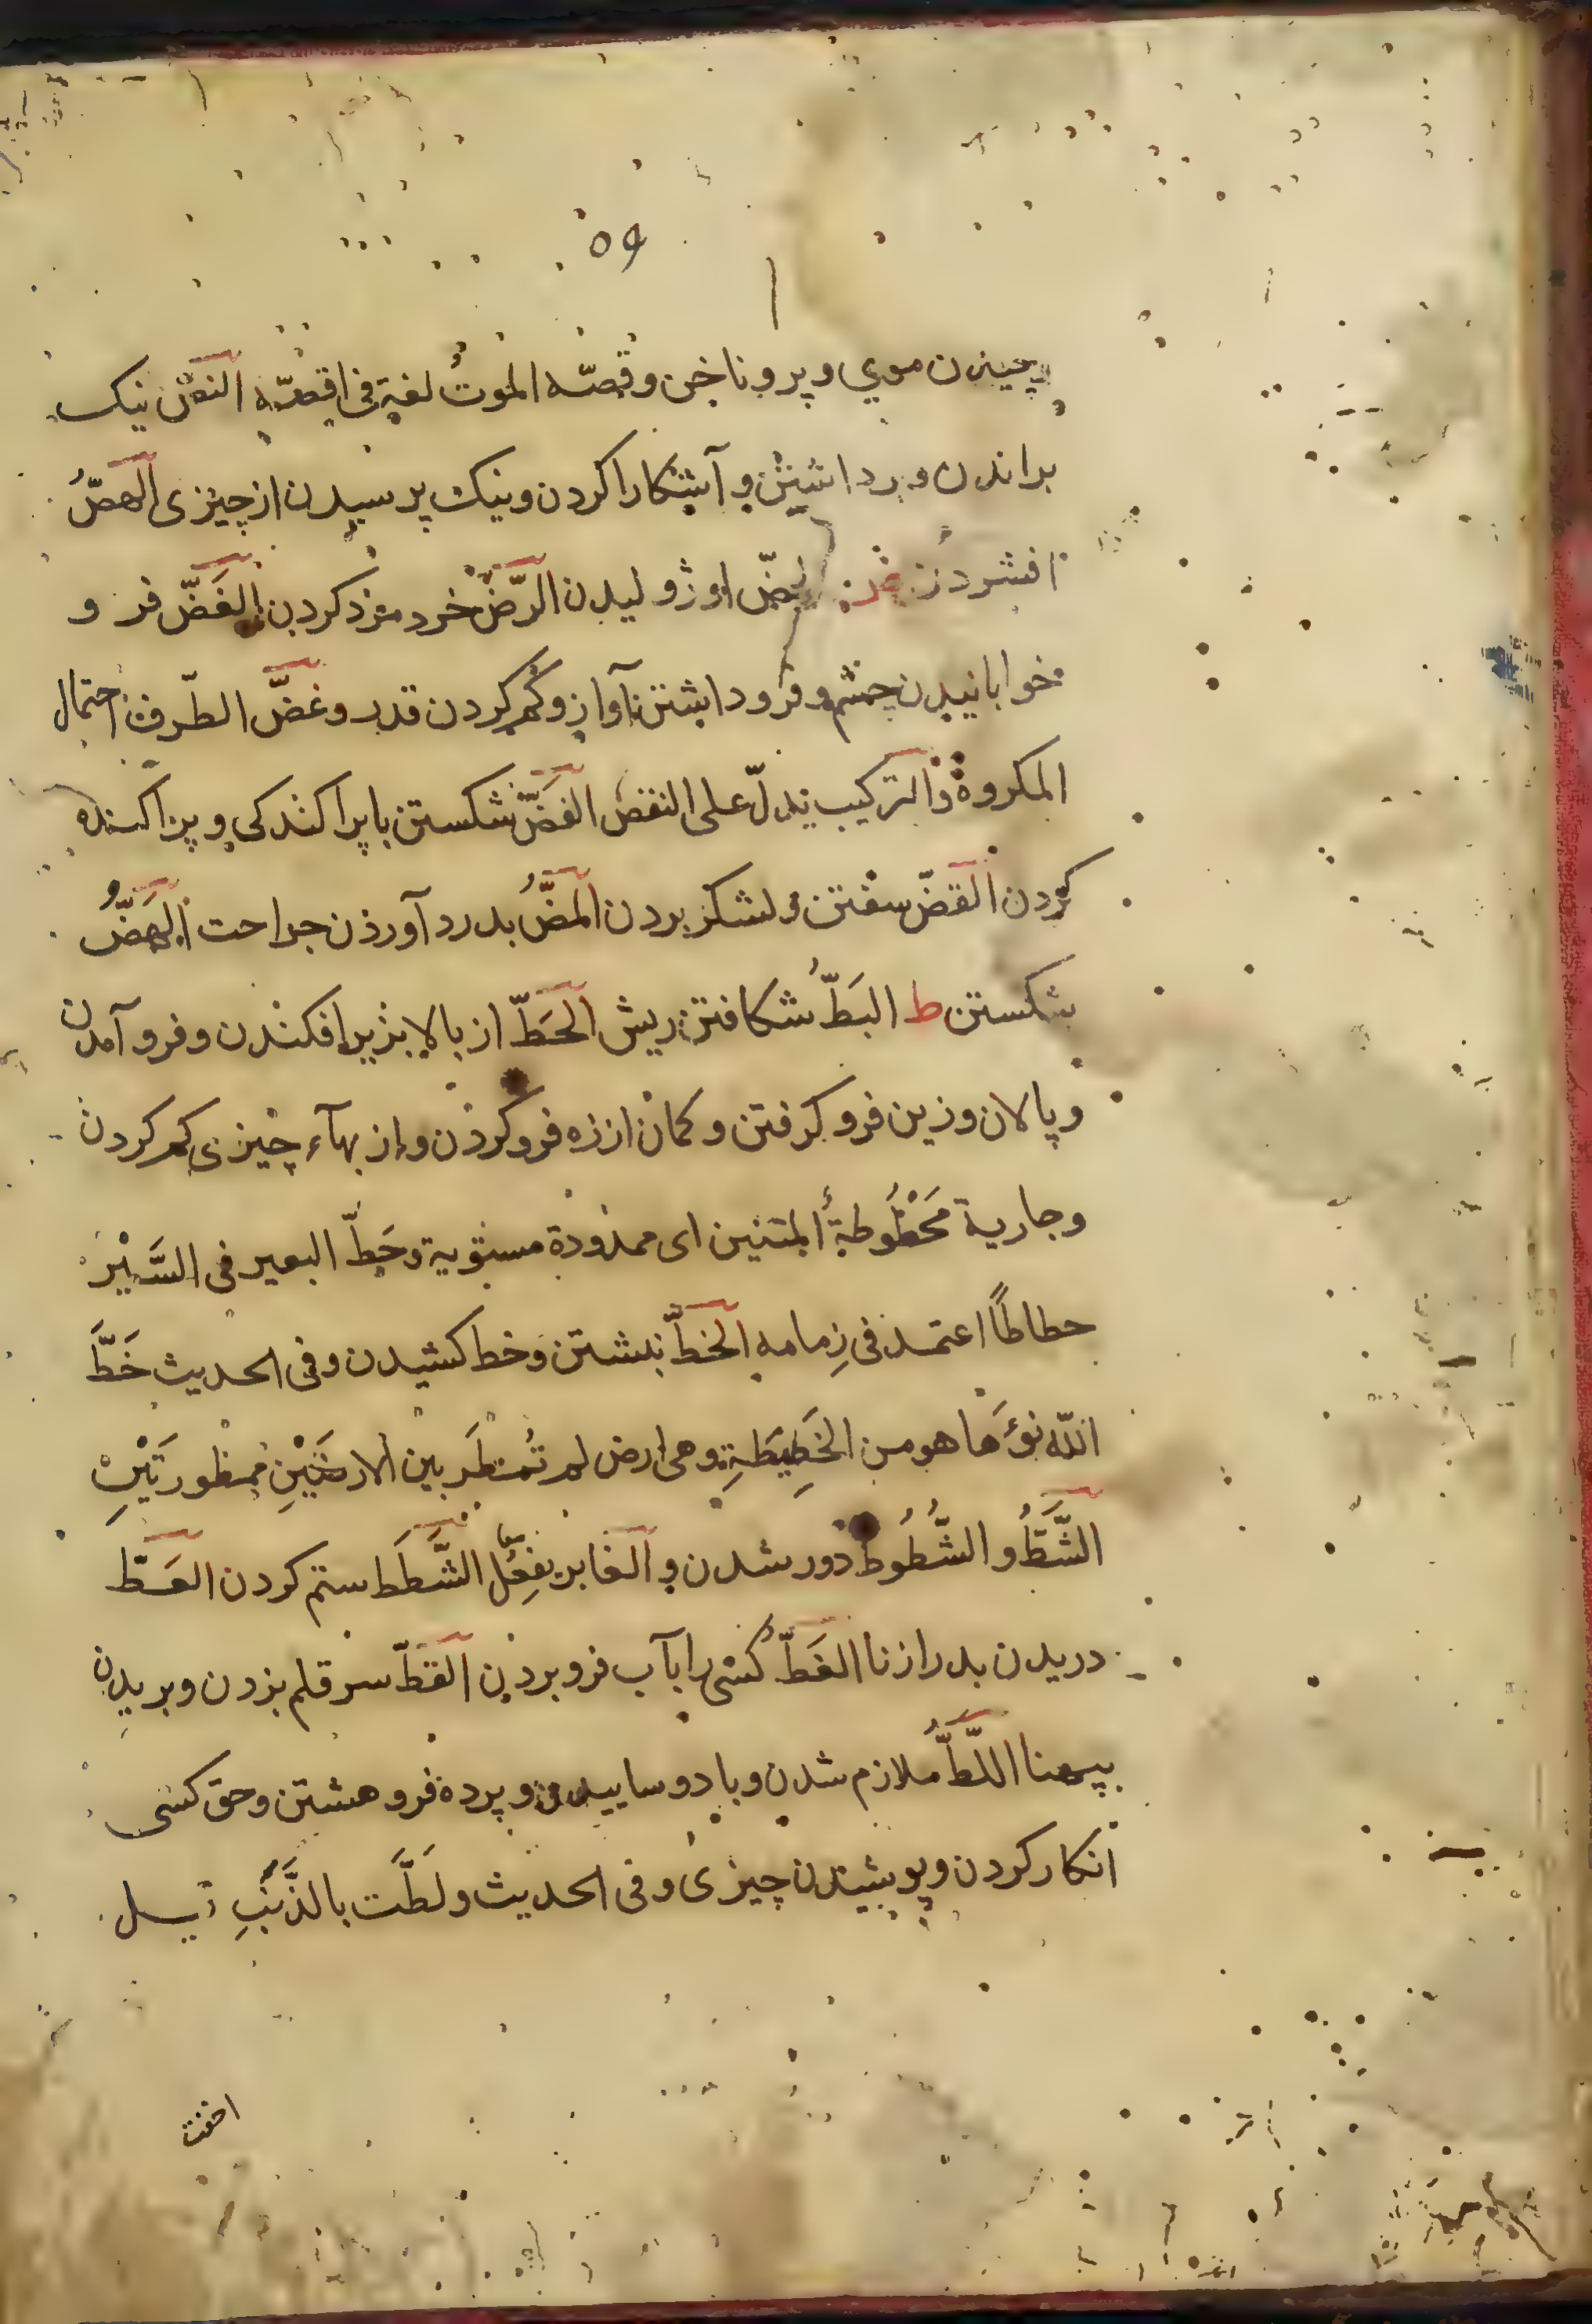 ٥٩
چیدن موی و پر و ناخن وقصّه الموتُ لغة فی اقصّه النصّ نیک
براندن و برداشتن و آشکارا کردن و نیک پرسیدن از چیزی الهصُّ
افشردن ض اوژولیدن الرّضّ خرد مرد کردن الغَضّ فر و
خوابانیدن چشم و فرو داشتن آواز و کم کردن قدر وغضّ الطّرف احتمال
المکروه والترکیب یدلّ علی النقض الفَضّ شکستن باپراکندکی و پراکنده
کردن القضّ سفتن و لشکر بردن المضُّ بدرد آوردن جراحت الهَضُّ
شکستن ط البَطّ شکافتن ریش الحَطّ از بالا بزیر افکندن و فرو آمدن
و پالان و زین فرو کرفتن و کمان از زه فرو کردن و از بهآء چیزی کم کردن
وجاریة مَحْطُوطةُ المتنین ای ممدودة مستویة وحَطّ البعیر فی السَّیْر
حطاطًا اعتمد فی زِمامه الخطّ نبشتن و خط کشیدن وفی الحدیث خَطَّ
اللّه نوءَها هو من الخَطِیطَةِ وهی ارض لم تُمْطَر بین الارضَیْنِ ممطورتَیْنِ
الشَّطُّ و الشُّطُوط دور شدن و الغابر یفعِلُ الشَّطَط ستم کردن العَطّ
دریدن بدرازنا الغَطّ کسی را بآب فرو بردن القطّ سر قلم بزدن و بریدن
بپهنا اللَّطّ ملازم شدن و با دوسانیدن و پرده فرو هشتن و حق کسی
انکار کردن و پوشیدن چیزی وفی الحدیث ولَطَّت بالذَّنَبِ